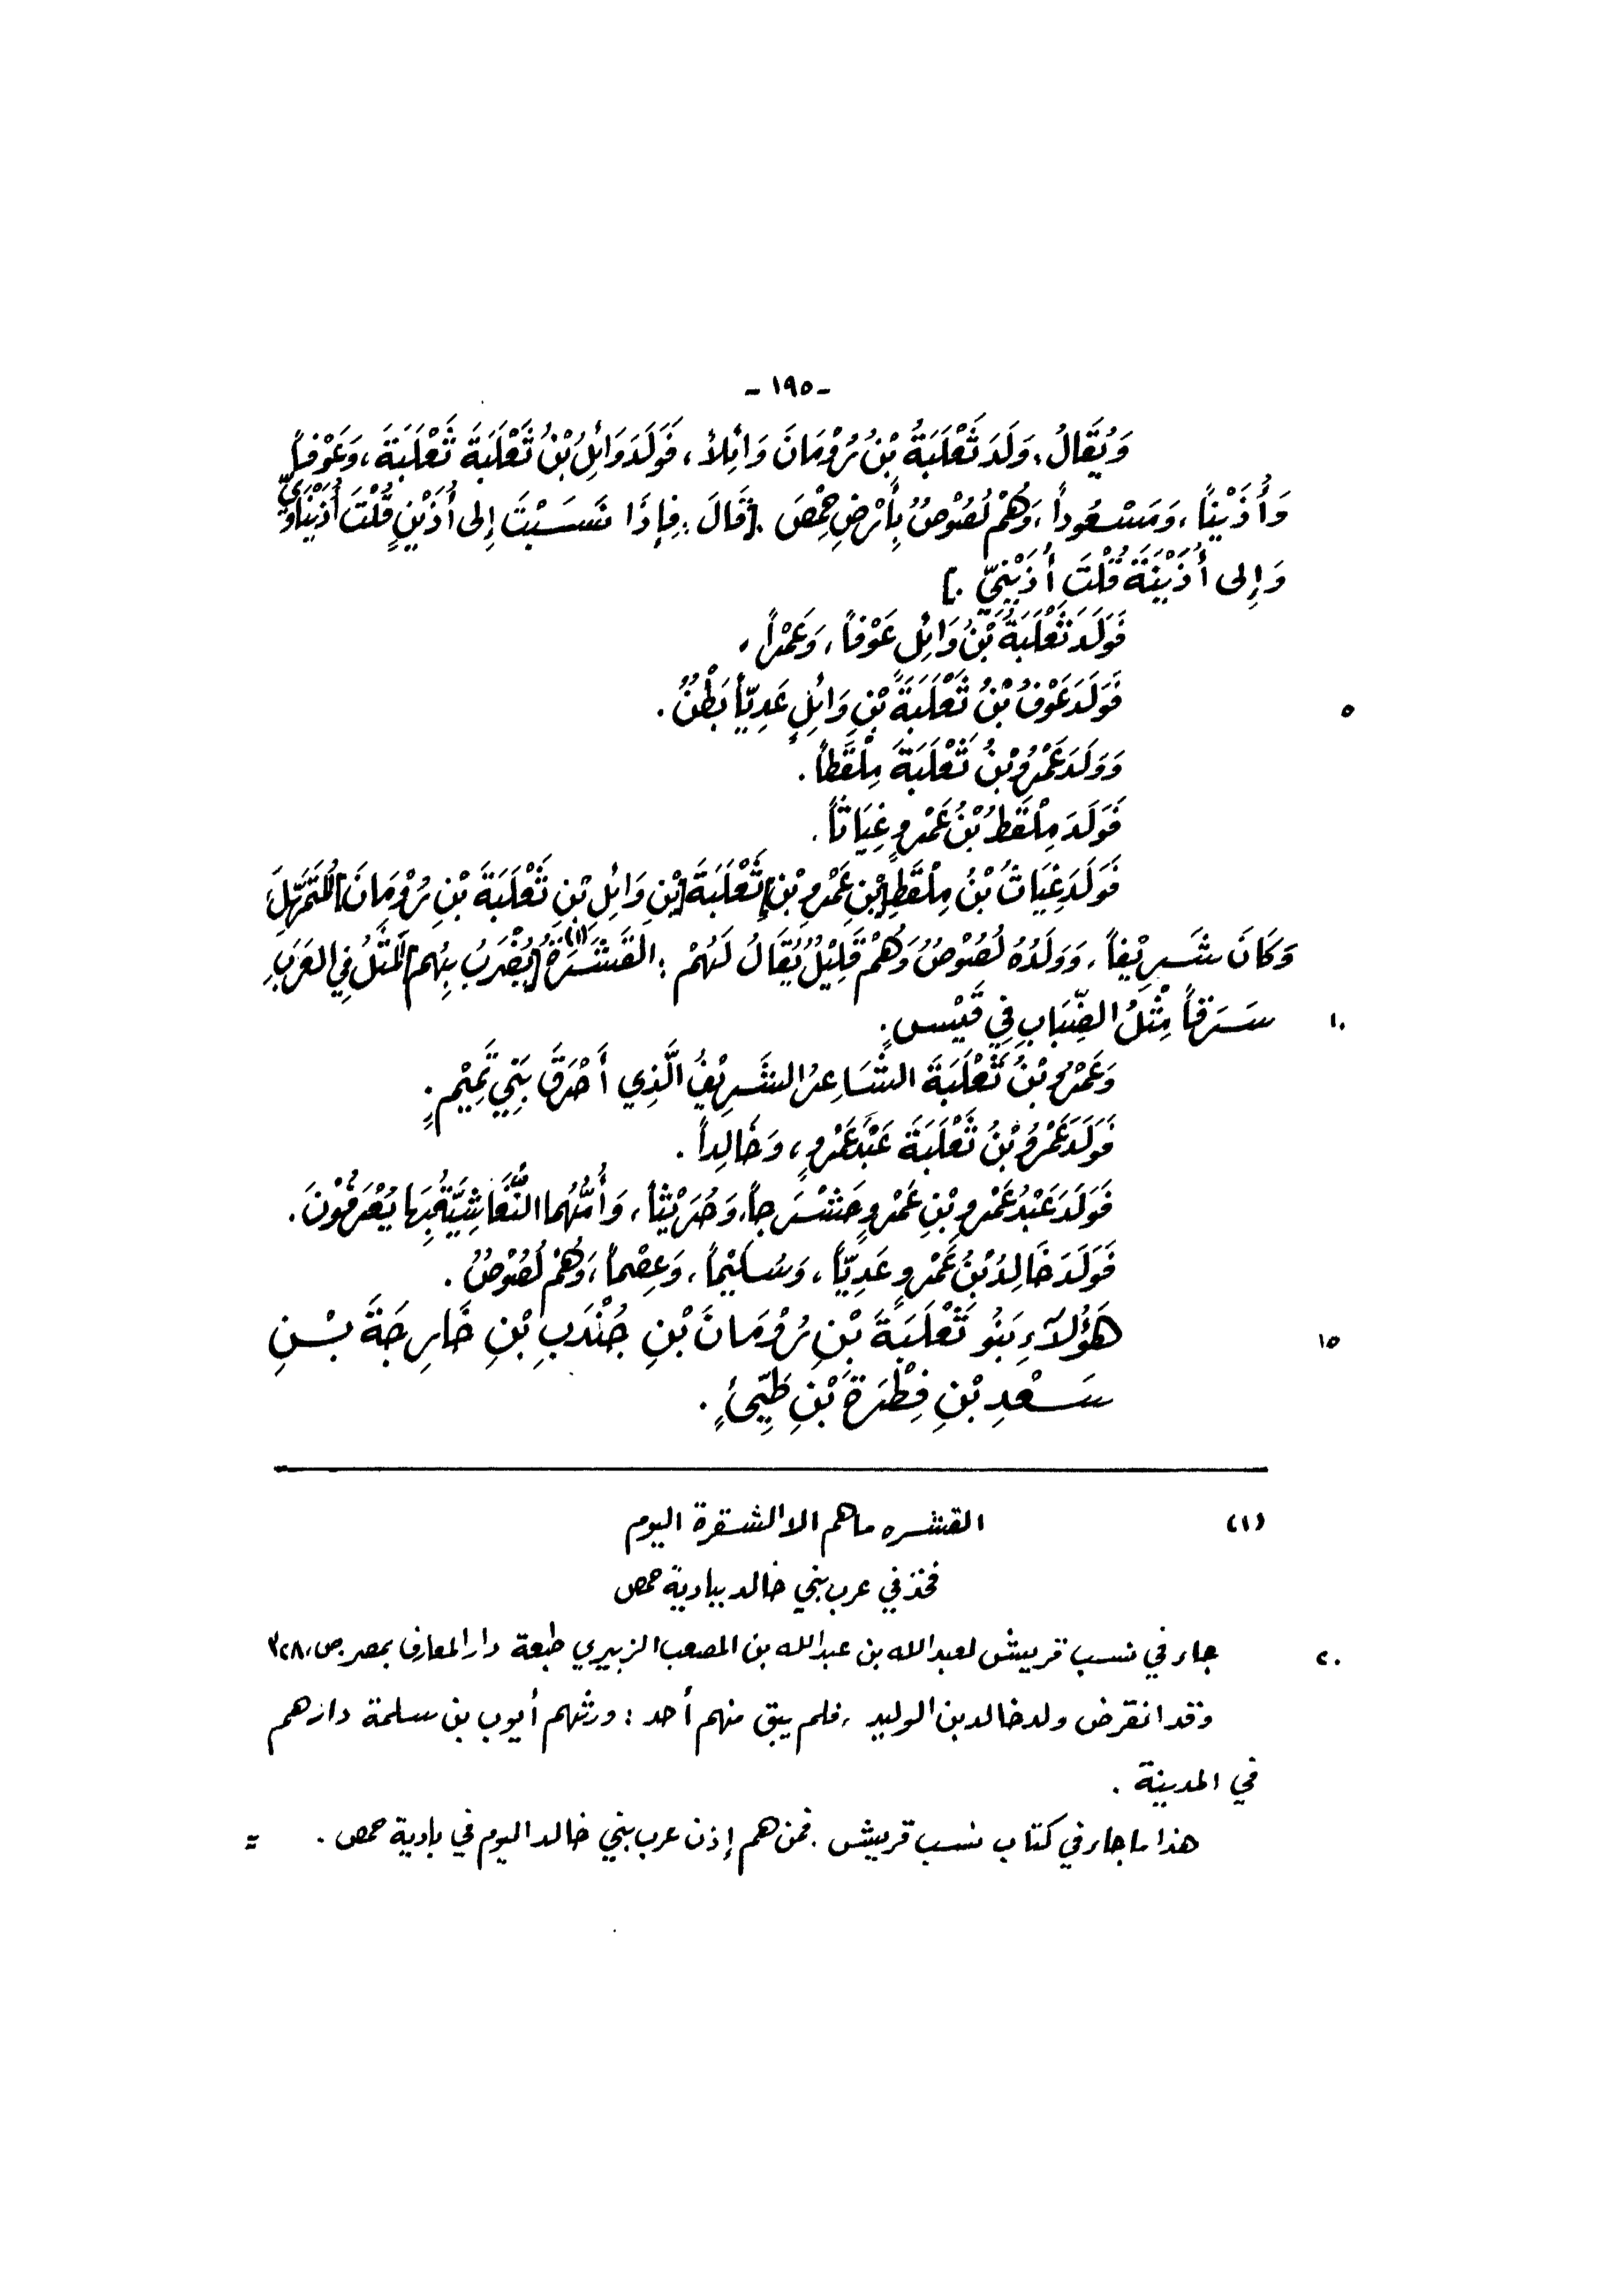 - ١٩٥ -
وَيُقَالُ: وَلَدَ ثَعْلَبَةُ بْنُ رُوْمَانَ وَائِلاً، فَوَلَدَ وَائِلُ بْنُ ثَعْلَبَةَ ثَعْلَبَةَ، وَعَوْفاً
وَأُذَيْناً، وَمَسْعُوداً، وَهُمْ لُصُوْصٌ بِأَرْضِ حِمْصَ [قَالَ: فَإِذَا نَسَبْتَ إِلى أُذَيْنٍ قُلْتَ أُذَيْنَاوِيٌّ
وَإِلى أُذَيْنَةَ قُلْتَ أُذَيْنِيّ .]
فَوَلَدَ ثَعْلَبَةُ بْنُ وَائِلٍ عَوْفاً، وَعَمْراً،
٥ فَوَلَدَ عَوْفُ بْنُ ثَعْلَبَةَ بْنِ وَائِلٍ عَدِيّاً بَطْنٌ .
وَوَلَدَ عَمْرُو بْنُ ثَعْلَبَةَ مِلْقَطاً .
فَوَلَدَ مِلْقَطُ بْنُ عَمْرٍو غِيَاثاً .
فَوَلَدَ غِيَاثُ بْنُ مِلْقَطِ [بْنِ عَمْرِو بْنِ] ثَعْلَبَةَ [بْنِ وَائِلِ بْنِ ثَعْلَبَةَ بْنِ رُوْمَانَ] المُتَمَهِّلَ
وَكَانَ شَرِيْفاً، وَوَلَدُهُ لُصُوْصٌ وَهُمْ قَلِيْلٌ يُقَالُ لَهُمْ: القَشَرَةُ (١) [يُضْرَبُ بِهُم] المَثَلُ فِي العَرَبِ
١٠ سَرَقاً مِثْلُ الضِّبَابِ فِي قَيْسٍ.
وَعَمْرُو بْنُ ثَعْلَبَةَ الشَّاعِرُ الشَّرِيْفُ الَّذِي أَحْرَقَ بَنِي تَمِيْمٍ .
فَوَلَدَ عَمْرُو بْنُ ثَعْلَبَةَ عَبْدَ عَمْرٍو، وَخَالِداً .
فَوَلَدَ عَبْدُ عَمْرِو بْنِ عَمْرٍو حَشْرَجاً، وَحُرَيْثاً، وَأُمُّهُما النُّغَاشِيَّةُ بِهَا يُعْرَفُوْنَ .
فَوَلَدَ خَالِدُ بْنُ عَمْرٍو عَدِيّاً، وَسُلَيْماً، وَعِصْماً، وَهُمْ لُصُوْصٌ .
١٥ هَؤُلاَءِ بَنُو ثَعْلَبَةَ بْنِ رُوْمَانَ بْنِ جُنْدَبِ بْنِ خَارِجَةَ بْنِ
سَعْدِ بْنِ فِطْرَةَ بْنِ طَيِّئٍ .
(١) القشره ما هم الا الشقرة اليوم
فخذ في عرب بني خالد ببادية حمص
٢٠ جاء في نسب قريش لعبد الله بن عبد الله بن المصعب الزبيري طبعة دار المعارف بمصر ص، ٣٢٨
وقد انقرض ولد خالد بن الوليد، فلم يبق منهم أحد: ورثهم أيوب بن سلمة دارهم
في المدينة .
هذا ما جاء في كتاب نسب قريش . فمن هم إذن عرب بني خالد اليوم في بادية حمص . =